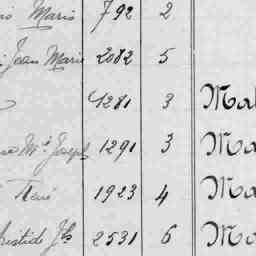 Marie 792 2
Jean Marie 2082 5
4281 3 Mal
Mie Joseph 1291 3 Ma
René 1923 4 Ma
Aristide Jh 2531 6 Ma